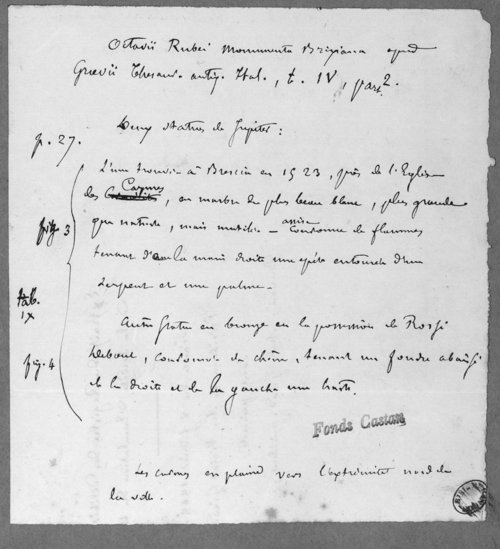 Octavii Rubei Monumenta Brixiana apud
Grævii Thesaur. antiq. Ital., t. IV, part 2.
p. 27.
Deux statues de Jupiter :
L'une trouvée à Brescia en 1523, près de l'Eglise
des Carmes, en marbre du plus beau blanc, plus grande
fig. 3
que nature, mais mutilée - assise Couronne de flammes
tenant dans la main droite une épée entourée d'un
tab.
IX
serpent et une palme.
Autre statue en bronze en la possession de Rossi
fig. 4
debout, couronnée de chêne, tenant un foudre abaissé
de la droite et de la gauche une haste.
Fonds Castan
Les en plaine vers l'extrémité nord de
la ville.